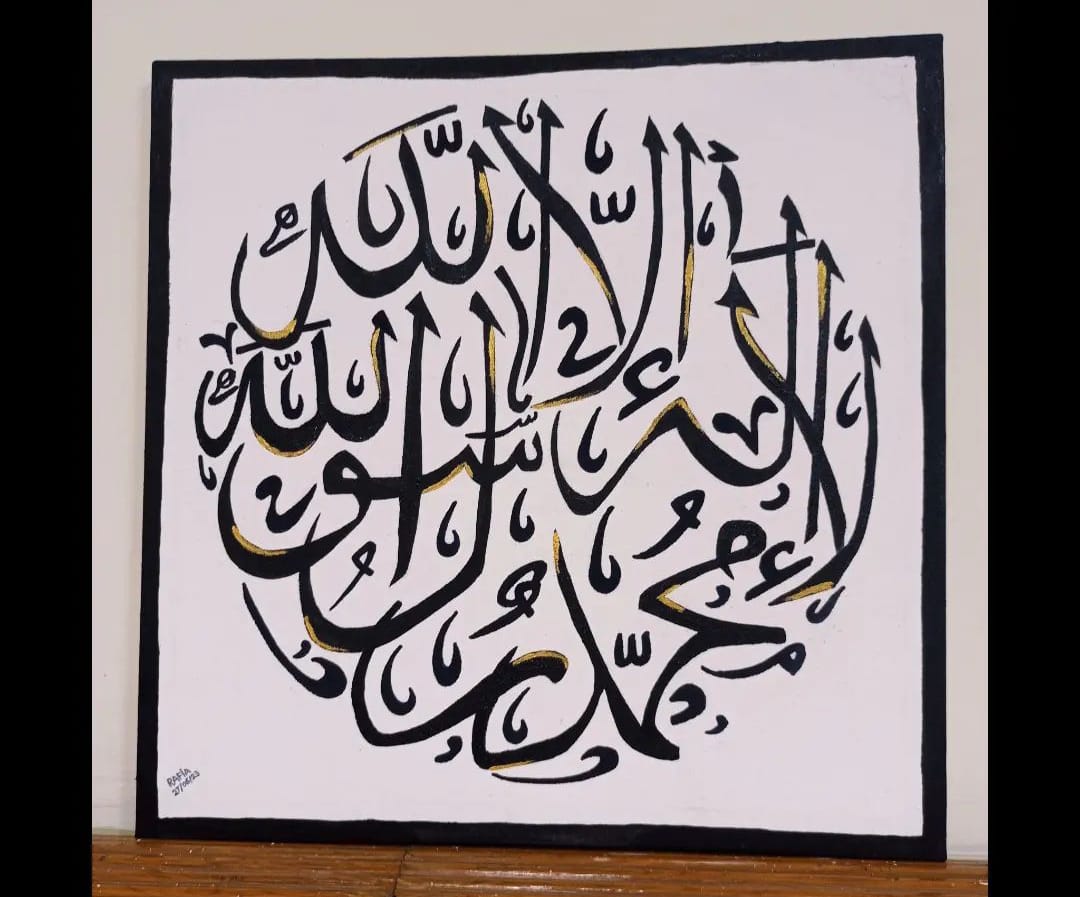 لا إله إلا الله
محمد رسول الله
RAFIA
27/08/23